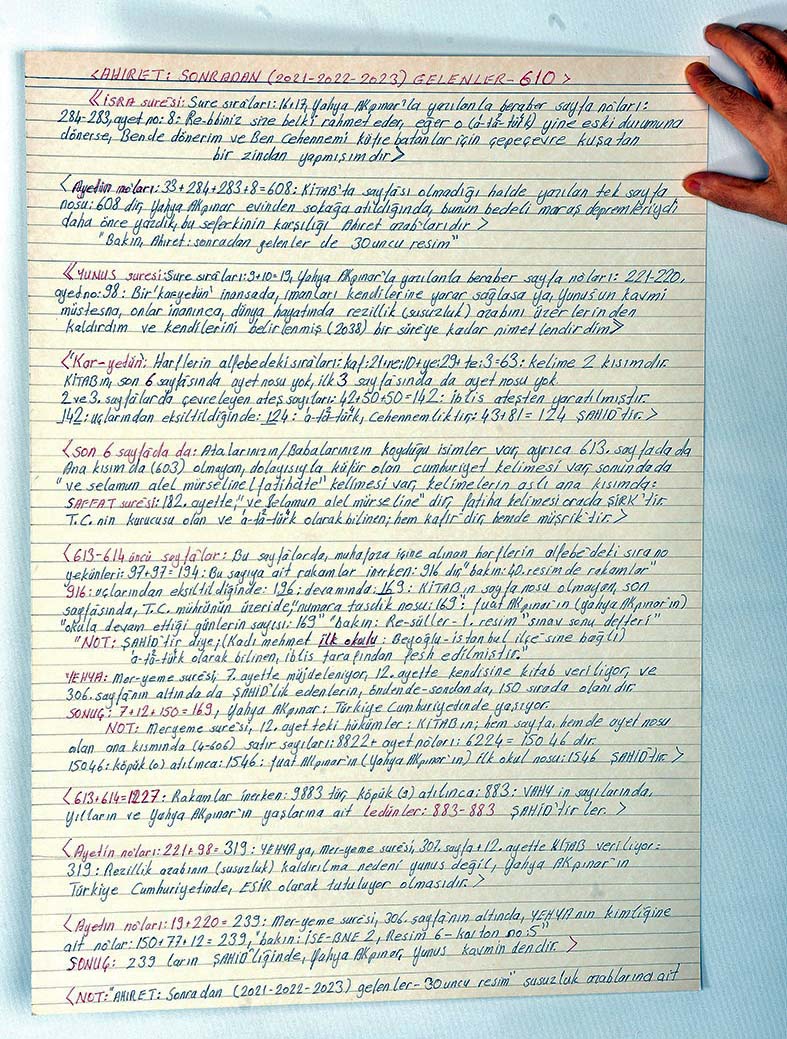 <AHIRET: SONRADAN (2021-2022-2023) GELENLER-610>
<<İSRA suresi: Sure sıraları: 16+17, Yahya AKpınar'la yazılanla beraber sayfa noları:
284-283, ayet no: 8: Re-bbiniz size belki rahmet eder, eğer o (a-tâ-türk) yine eski durumuna
dönerse, Bende dönerim ve Ben Cehennemi küfre batanlar için çepeçevre kuşatan
bir zindan yapmışımdır>
<Ayetin no'ları: 33+284+283+8=608: KİTAB'ta sayfası olmadığı halde yazılan tek sayfa
nosu: 608 dir, Yahya AKpınar evinden sokağa atıldığında, bunun bedeli maraş depremleriydi
daha önce yazdık, bu seferkinin karşılığı Ahiret azab'larıdır>
"Bakın, Ahiret: sonradan gelenler de 30uncu resim"
<<YUNUS suresi: Sure sıraları: 9+10=19, Yahya AKpınar'la yazılanla beraber sayfa no'ları: 221-220,
ayet no: 98: Bir 'karyetün' inansada, imanları kendilerine yarar sağlasa ya, Yunus'un kavmi
müstesna, onlar inanınca, dünya hayatında rezillik (susuzluk) azabını üzerlerinden
kaldırdım ve kendilerini belirlenmiş (2038) bir süreye kadar nimetlendirdim>>
<"Kar-yetün": Harflerin alfebedeki sıraları: kaf:21+re:10+ye:29+te:3=63: kelime 2 kısımdır.
KİTABın, son 6 sayfasında ayet nosu yok, ilk 3 sayfasında da ayet nosu yok
2 ve 3. sayfalarda çevreleyen ateş sayıları: 42+50+50=142: iblis ateşten yaratılmıştır.
142: uçlarından eksiltildiğinde: 124: a-tâ-türk, Cehennemliktir: 43+81=124 ŞAHİD'tir.>
<son 6 sayfada da: Atalarınızın/Babalarınızın koyduğu isimler var, ayrıca 613. sayfada da
Ana kısımda (603) olmayan, dolayısıyla küfür olan cumhuriyet kelimesi var, sonunda da
"ve selamun alel mürseline(fatihate" kelimesi var, kelimelerin aslı ana kısımda:
SAFFAT suresi: 182. ayette, "ve selamun alel mürseline" dir, fatiha kelimesi orada ŞİRK'tir.
T.C. nin kurucusu olan ve a-tâ-türk olarak bilinen; hem kafir dir, hemde müşrik'tir.>
<613-614 üncü sayfalar: Bu sayfalarda, muhafaza içine alınan harflerin alfebe'deki sıra no
yekünleri: 97+97=194: Bu sayıya ait rakamlar inerken: 916 dır, "bakın: 40. resimde rakamlar"
916: uçlarından eksiltildiğinde: 196: devamında: 169: KİTAB'ın sayfa nosu olmayan, son
sayfasında, T.C. mührünün üzeride, "numara tasdik nosu: 169": fuat AKpınar'ın (yahya AKpınar'ın)
"okula devam ettiği günlerin sayısı: 169" "bakın: Re-süller-1. resim" "sınav sonu defteri"
"NOT: ŞAHİD'tir diye; (Kadı mehmet ilk okulu: Beyoğlu-istanbul ilçesine bağlı)
a-tâ-türk olarak bilinen, iblis tarafından fesh edilmiştir."
YEHYA: Mer-yeme suresi, 7. ayette müjdeleniyor, 12. ayette kendisine kitab veriliyor, ve
306. sayfa'nın altında da ŞAHİD'lik edenlerin, önden de-sondan da, 150 sırada olanıdır.
SONUÇ: 7+12+150=169, Yahya AKpınar: Türkiye Cumhuriyetinde yaşıyor.
NOT: Meryeme suresi, 12. ayet teki hükümler: KİTAB'ın; hem sayfa, hem de ayet nosu
olan ana kısmında (4-606) satır sayıları: 8822+ ayet no'ları: 6224 = 150 46 dır.
15046: köpük (o) atılınca: 1546: fuat AKpınar'ın (Yahya AKpınar'ın) ilk okul nosu: 1546 ŞAHİD'tir.>
<613+614=1227: Rakamlar inerken: 9883 tür, köpük (9) atılınca: 883: VAHY'in sayılarında,
yılların ve Yahya AKpınar'ın yaşlarına ait ledünler: 883-883 ŞAHİD'tir ler.>
<Ayetin no'ları: 221+98= 319: YEHYA ya, mer-yeme suresi, 307. sayfa+12. ayette KİTAB veriliyor:
319: Rezillik azabının (susuzluk) kaldırılma nedeni yunus değil, Yahya AKpınar'ın
Türkiye Cumhuriyetinde, ESİR olarak tutuluyor olmasıdır.>
<Ayetin no'ları: 19+220= 239: Mer-yeme suresi, 306. sayfa'nın altında, YEHYA'nın kimliğine
ait no'lar: 150+77+12= 239, "bakın: İSE-BNE 2, Resim 6-karton no: 5"
SONUÇ: 239 ların ŞAHİD'liğinde, Yahya AKpınar, Yunus kavmin dendir.>
<NOT: "AHIRET: Sonradan (2021-2022-2023) gelenler-30uncu resim" susuzluk azablarına ait